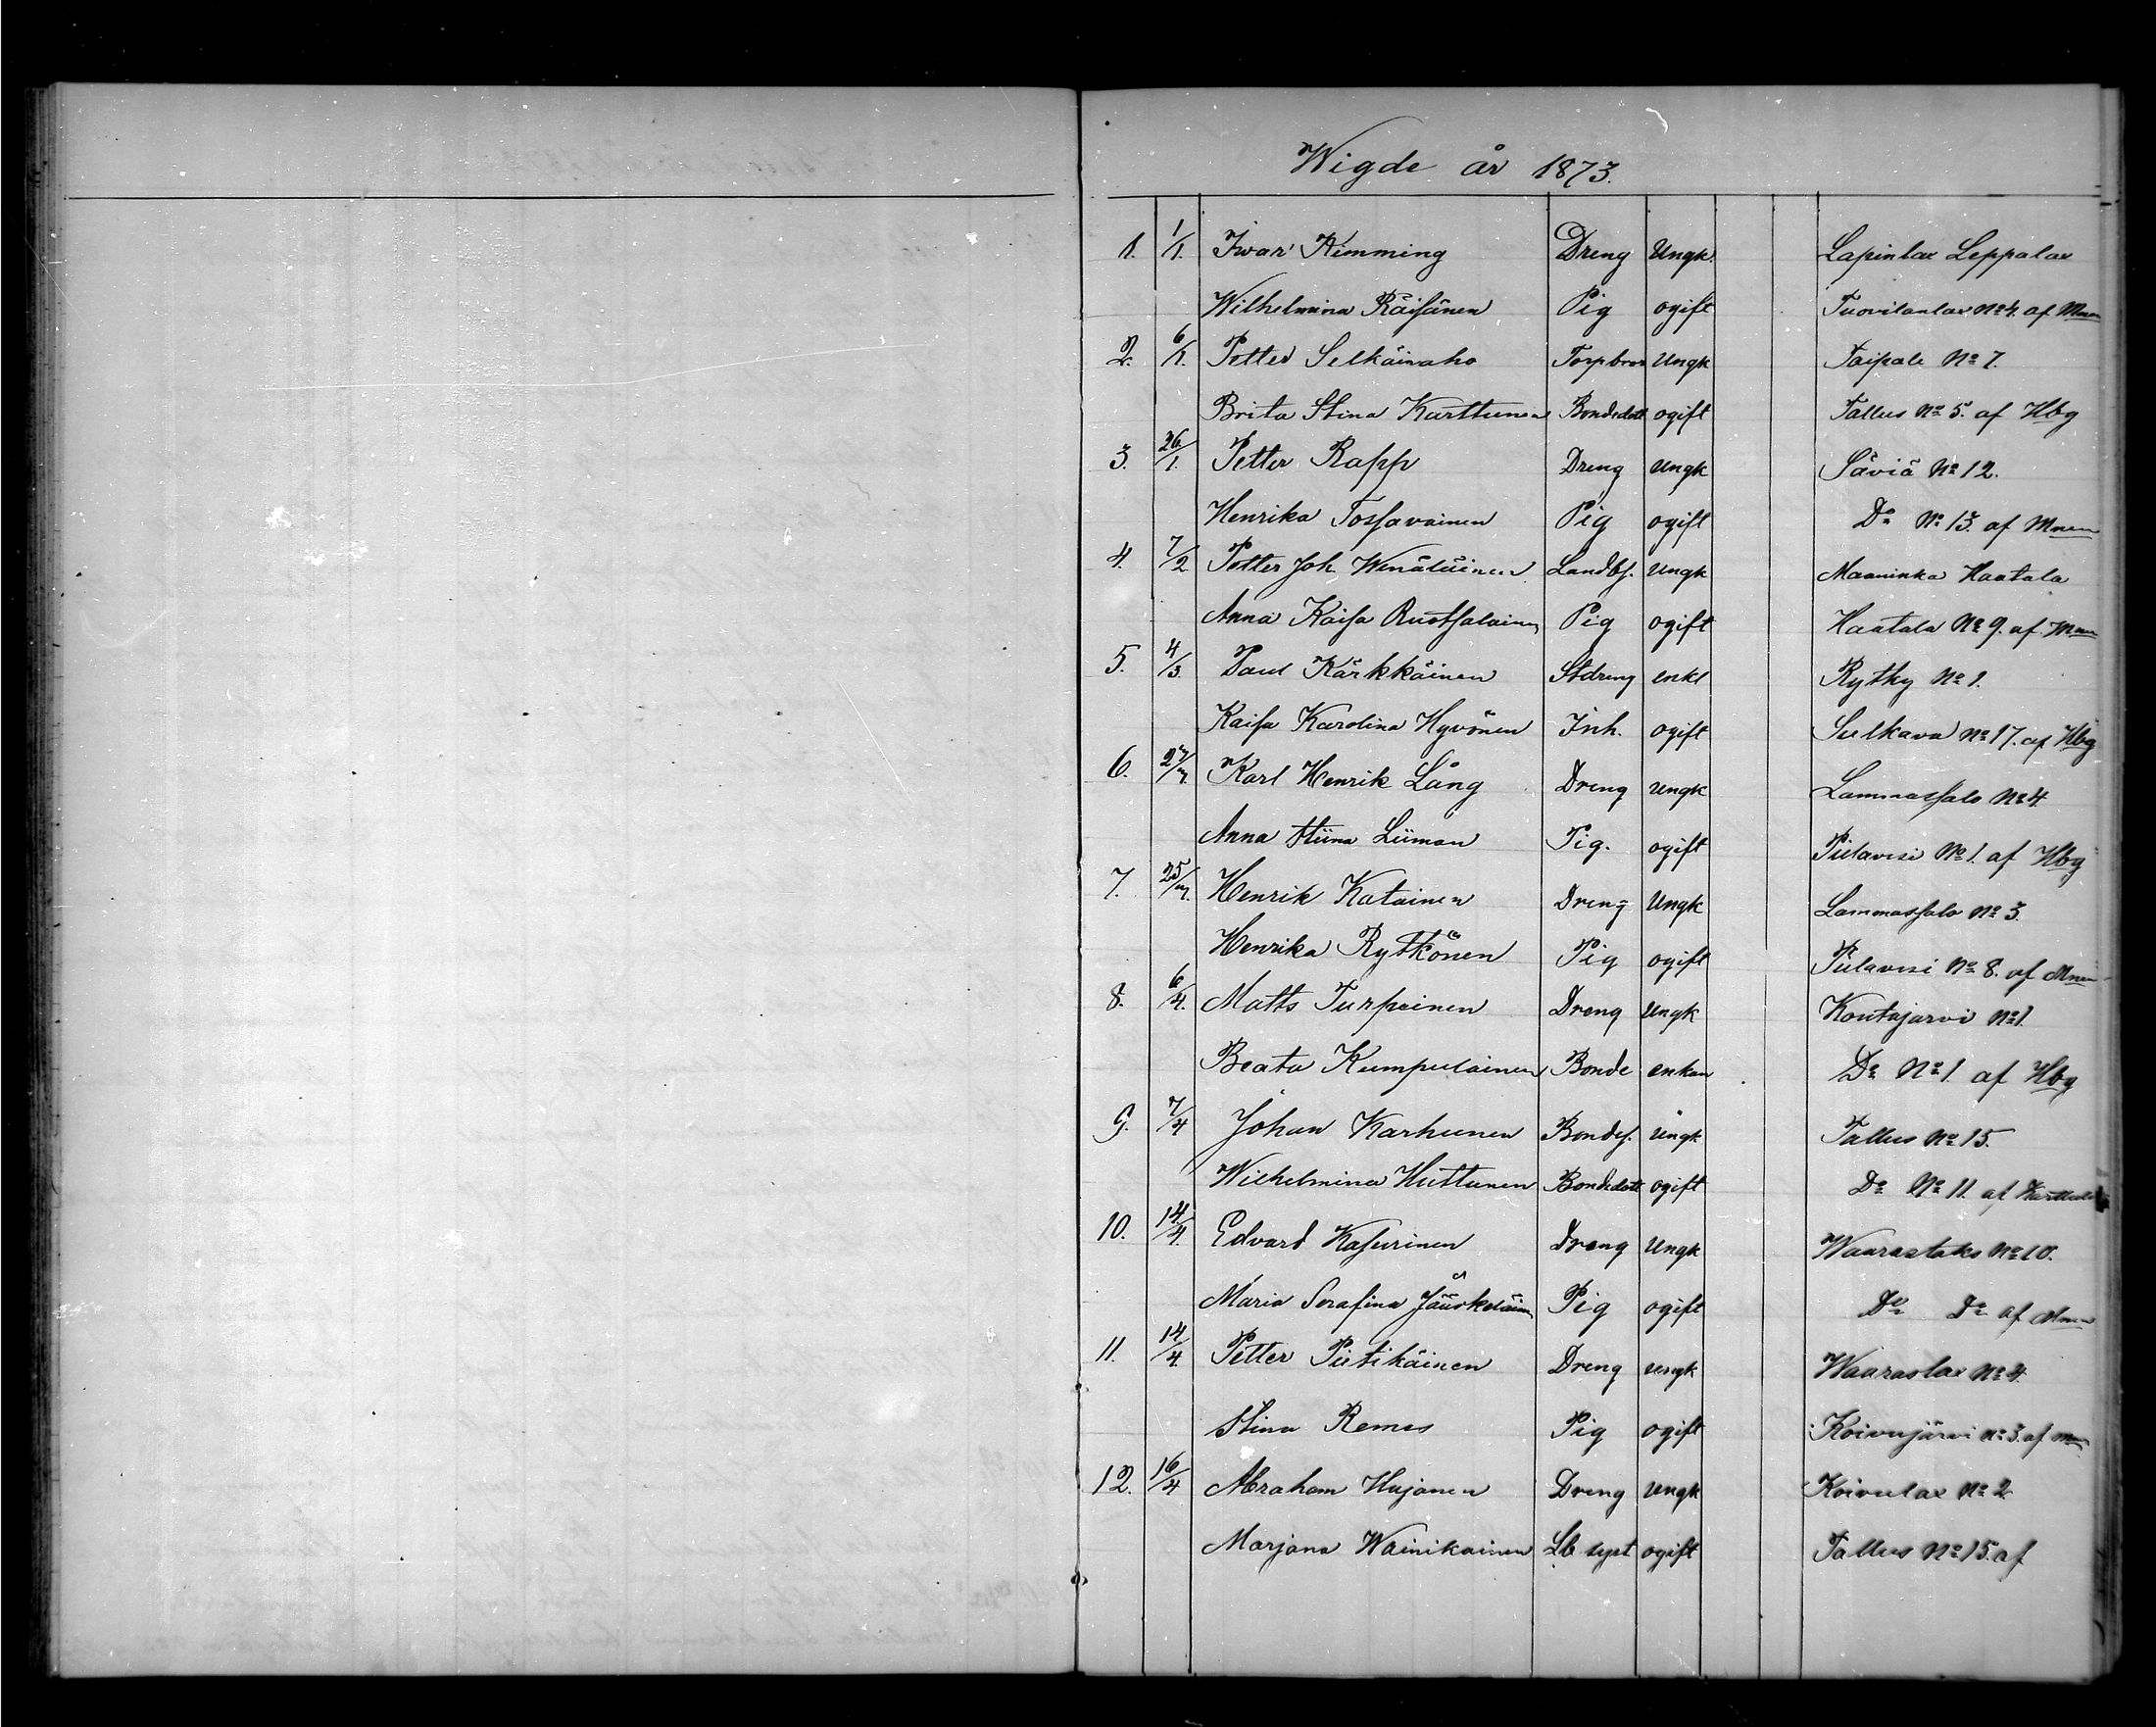 Wigde år 1873.
1. 1/1. Iwar Kimming Dreng Ungk. Lapinlax Leppalax
Wilhelmina Räisänen Pig ogift Tuovilanlax No 4. af Mnen
2. 6/1. Petter Selkäinaho Torpbror Ungk Taipale No 7.
Brita Stina Karttunen Bondedott ogift Tallus No 5. af Hbg
3. 26/1. Petter Rapp Dreng Ungk Säviä No 12.
Henrika Tossavainen Pig ogift Do No 13. af Mnen
4. 7/2 Petter Joh. Wenäläinen Landbs. Ungk Maaninka Haatala
Anna Kaisa Ruotsalainen Pig ogift Haatala No 9. af Mnen
5. 4/3. Paul Kärkkäinen Stdreng enkl Rytky No 1.
Kaisa Karolina Hyvönen Inh. ogift Sulkava No 17. af Hbg
6. Karl Henrik Lång Dreng Ungk Lammassalo No 4
Anna Stiina Liiman Pig. ogift Pielavesi No 1. af Hbg
7. Henrik Katainen Dreng Ungk Lammassalo No 3.
Henrika Rytkönen Pig ogift Pielavesi No 8. af Mnen
8. 6/4. Matts Turpeinen Dreng Ungk Koutajarvi No 1
Beata Kumpulainen Bonde enkan Do No 1. af Hbg
9. 7/4 Johan Karhunen Bondes. Ungk Tallus No 15.
Wilhelmina Huttunen Bondedott ogift Do No 11. af Karttula
10. 14/4. Edvard Kasurinen Dreng Ungk No 10.
Maria Serafina Jääskeläinen Pig ogift Do Do af Mnen
11. 14/4. Petter Piitikäinen Dreng Ungk Waaraslax No 4.
Stina Remes Pig ogift Koivujärvi No 3. af Mnen
12. 16/4 Abraham Hujanen Dreng Ungk Koivulax No 2
Marjana Wainikainen Lb syst ogift Tallus No 15. af